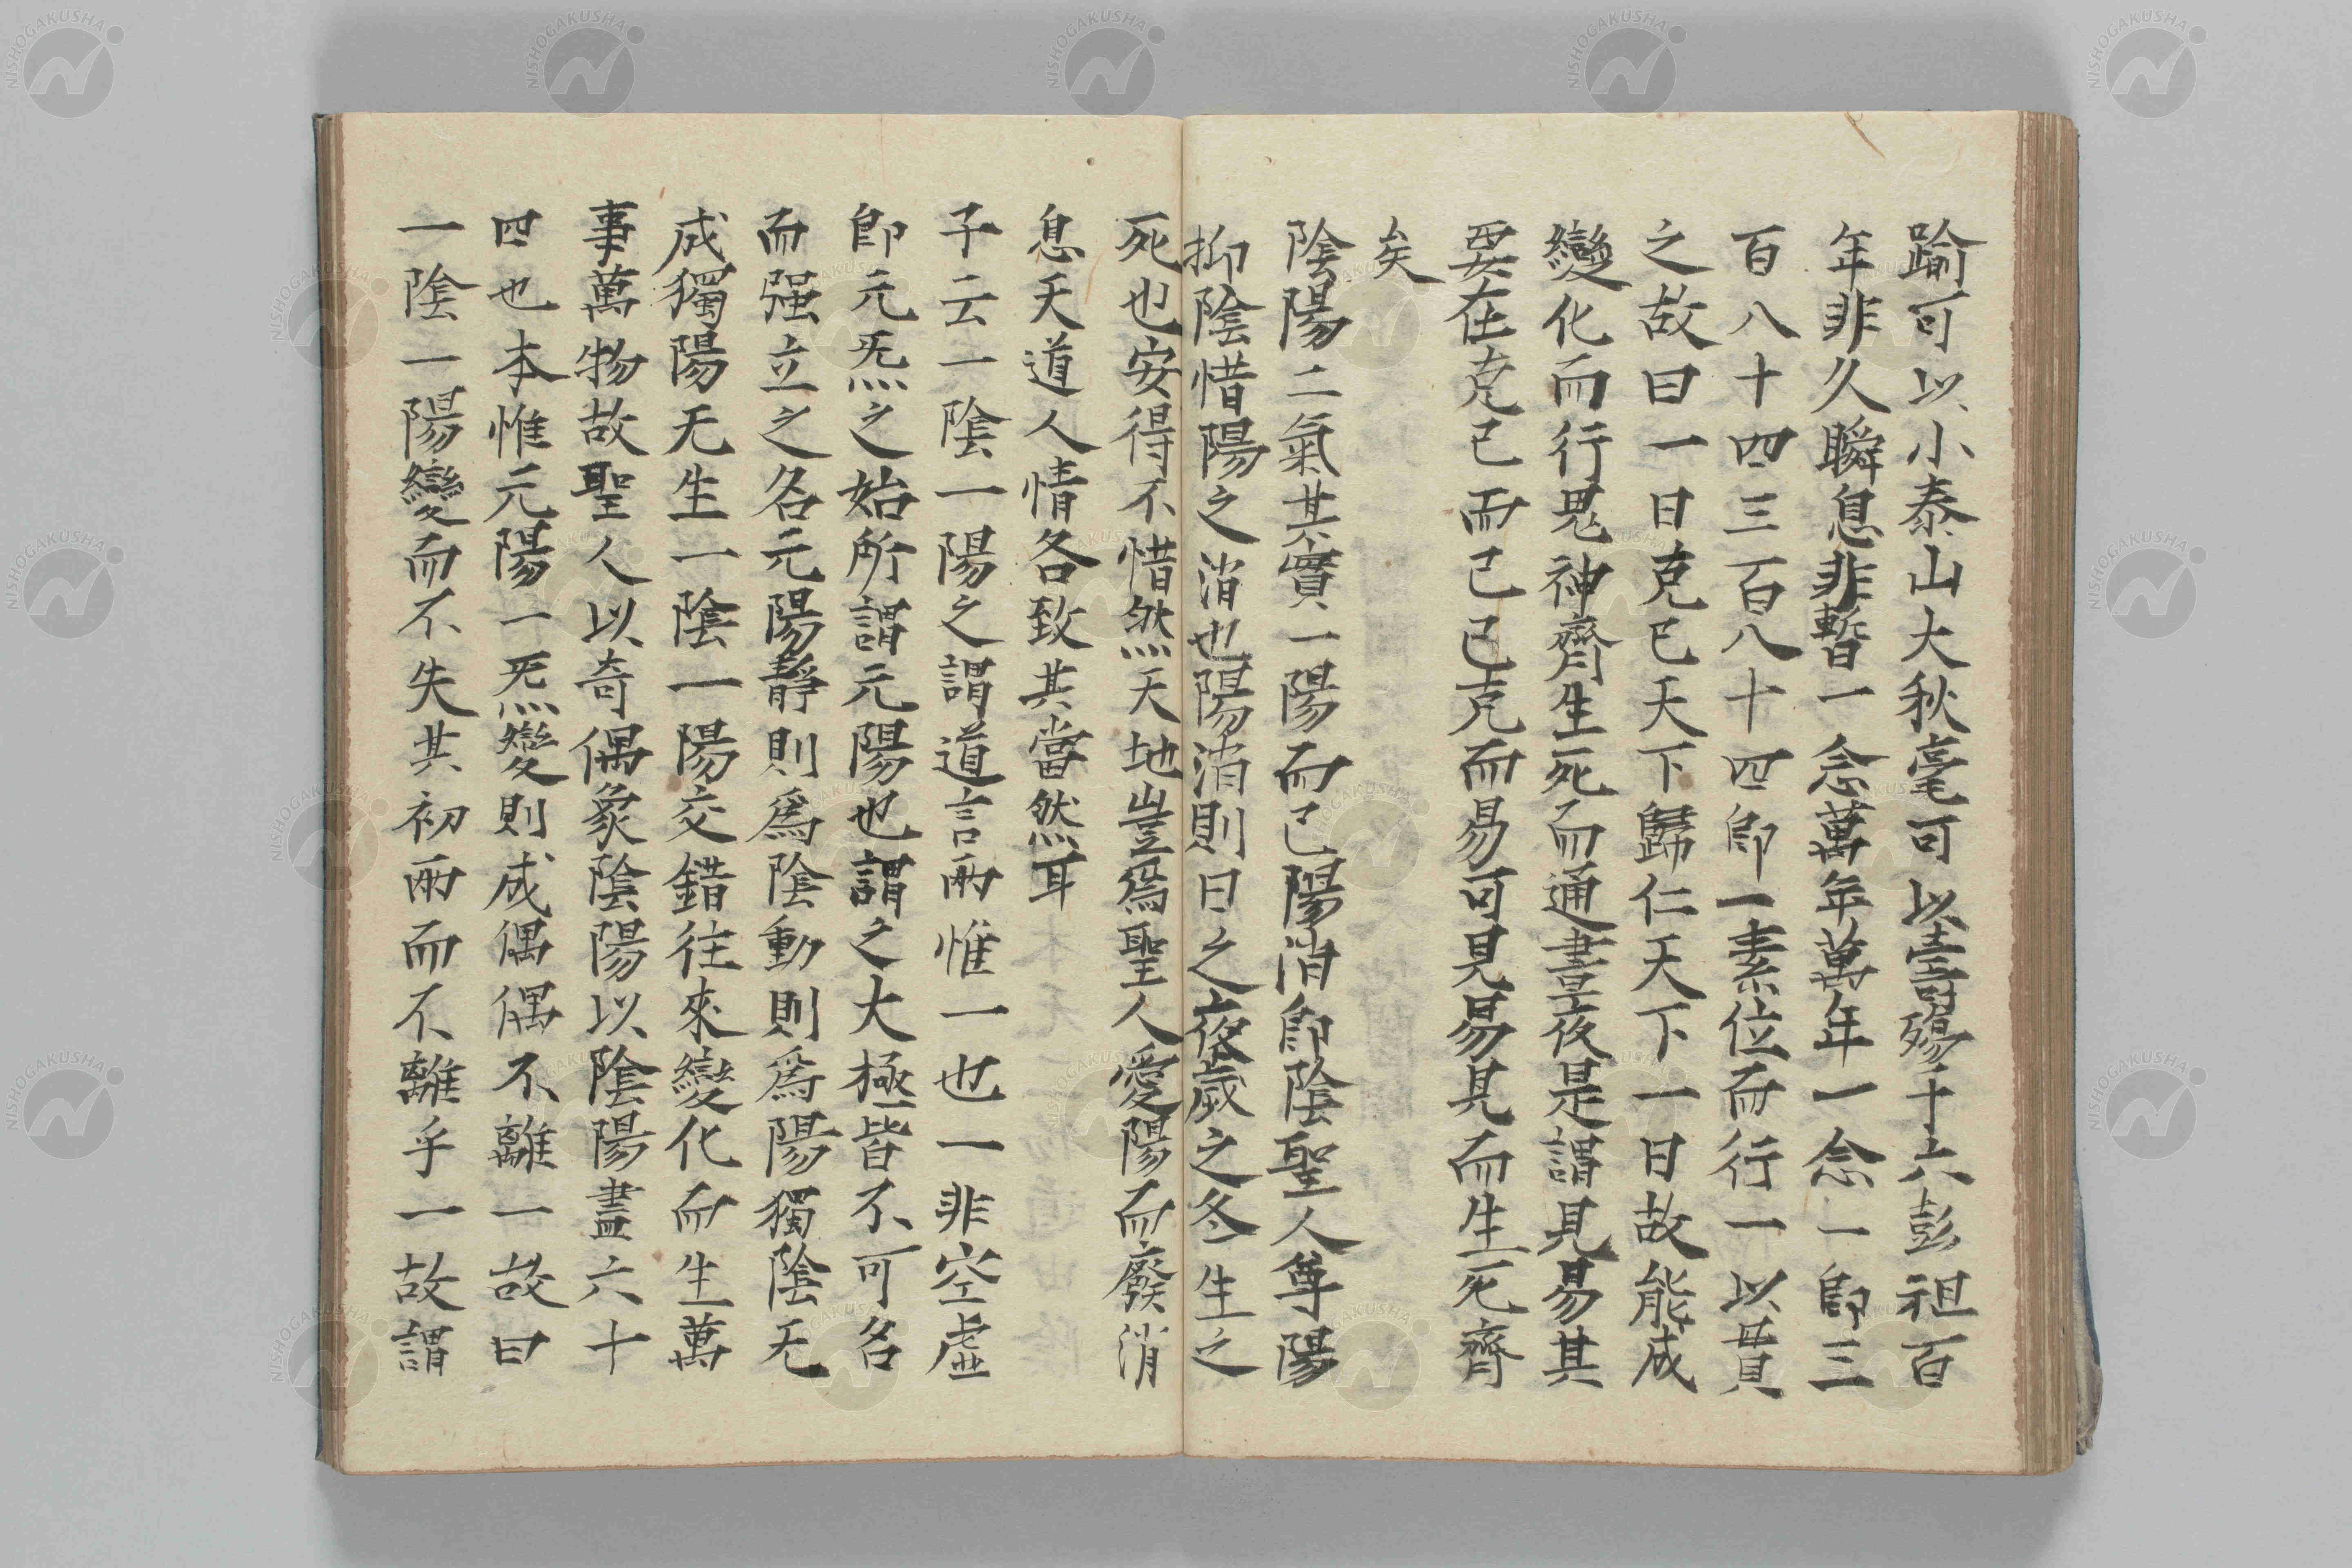 踰可以小泰山大秋毫可以壽殤子六彭祖百
年非久瞬息非暫一念萬年萬年一念一卽三
百八十四三百八十四卽一素位而行一以貫
之故曰一日克己天下歸仁天下一日故能成
變化而行鬼神齊生死而通晝夜是謂見易其
要在克己而已己克而易可見易見而生死齊
矣
陰陽二氣其實一陽而已陽消卽陰聖人尊陽
抑陰惜陽之消也陽消則日之夜歲之冬生之
死也安得不惜然天地豈爲聖人愛陽而廢消
息天道人情各致其當然耳
子云一陰一陽之謂道言兩惟一也一非空虛
卽元炁之始所謂元陽也謂之大極皆不可名
而强立之名元陽靜則爲陰動則爲陽獨陰无
成獨陽无生一陰一陽交錯往來變化而生萬
事萬物故聖人以奇偶象陰陽以陰陽盡六十
四也本惟元陽一炁變則成偶偶不離一故曰
一陰一陽變而不失其初兩而不離乎一故謂
NISHOGAKUSHA